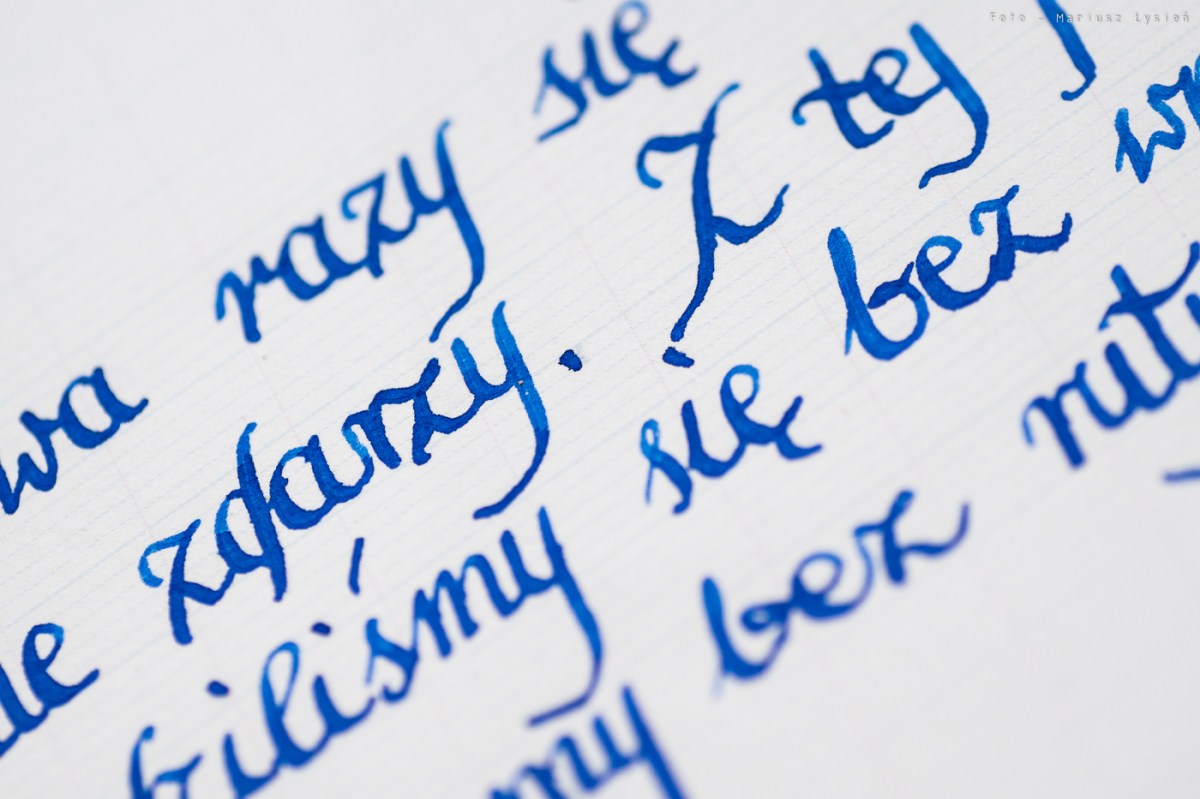 Foto - Mariusz Łysień
wa razy się
ie zdarzy. Z tej
biliśmy się bez w
my bez ruty